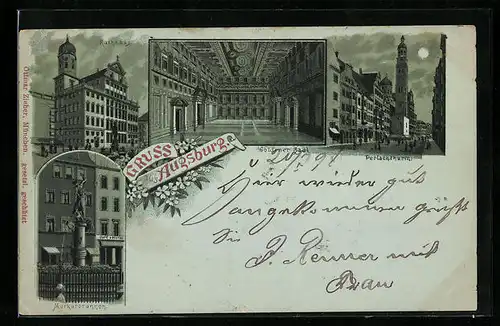 Rathhaus
Goldener Saal
Perlachthurm
GRUSS
aus Augsburg.
Merkurbrunnen.
Ottmar Zieher, München. gesetzl. geschützt
Hier wieder gut
angekommen grüßt
Sie J. Renner mit
Frau